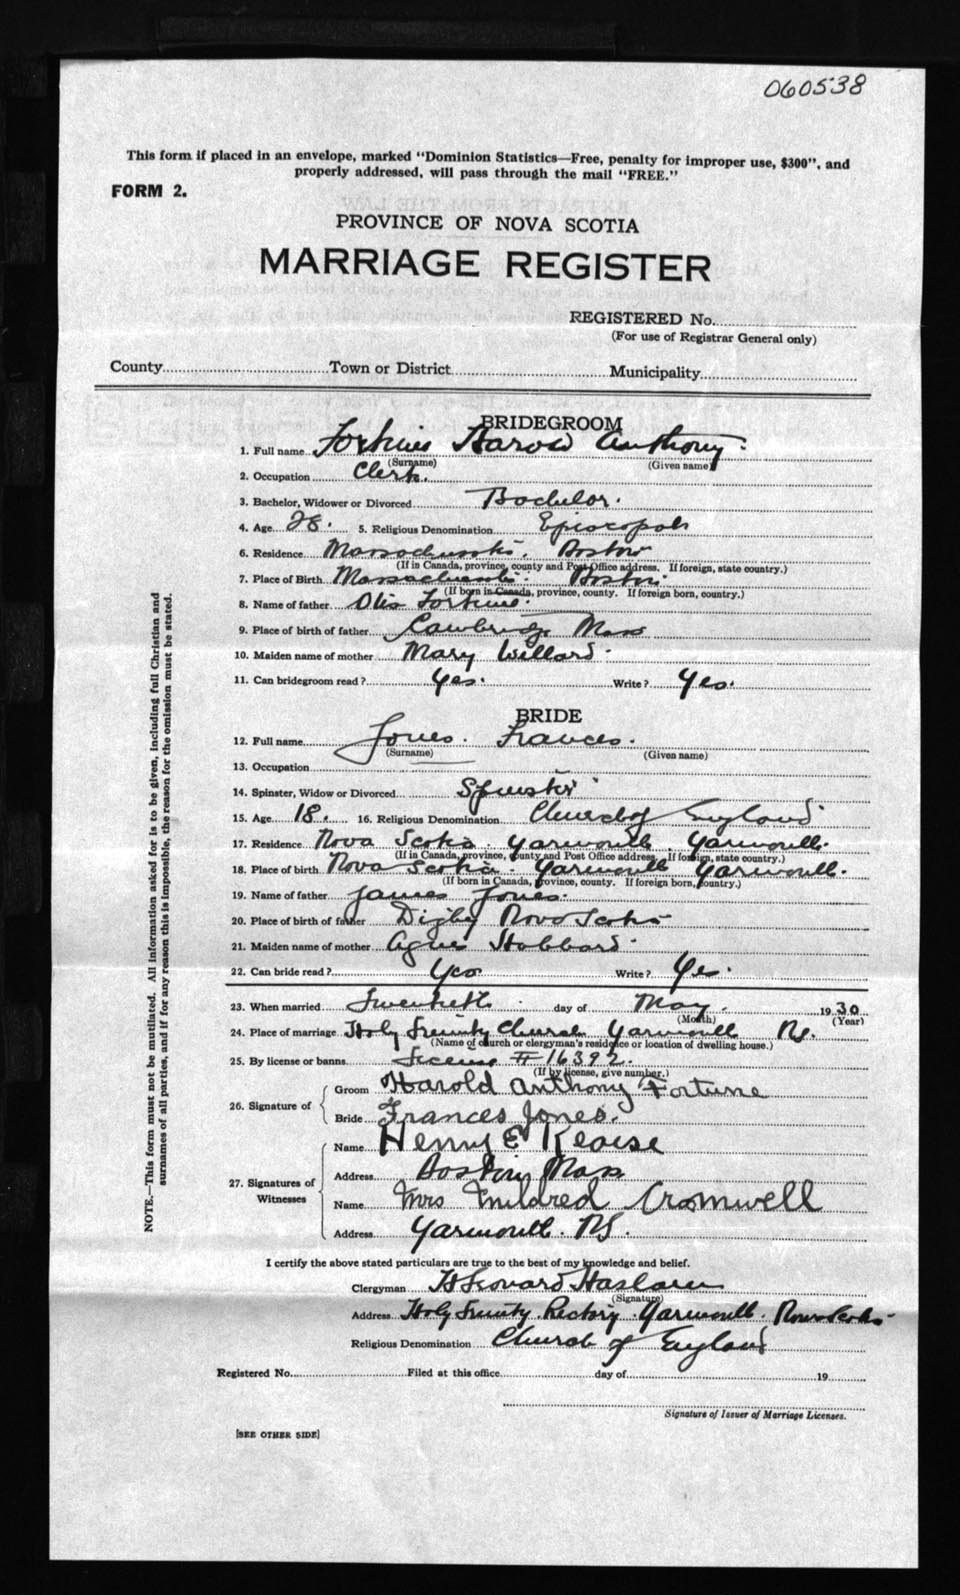 060538
This form if placed in an envelope, marked "Dominion Statistics—Free, penalty for improper use, $300", and
properly addressed, will pass through the mail "FREE."
FORM 2.
PROVINCE OF NOVA SCOTIA
MARRIAGE REGISTER
REGISTERED No.
(For use of Registrar General only)
County Town or District Municipality
BRIDEGROOM
1. Full name Harold Anthony.
(Surname) (Given name)
2. Occupation Clerk.
3. Bachelor, Widower or Divorced Bachelor.
4. Age 28. 5. Religious Denomination Episcopal
6. Residence Massachusetts. Boston
(If in Canada, province, county and Post Office address. If foreign, state country.)
7. Place of Birth Massachusetts. Boston.
(If born in Canada, province, county. If foreign born, country.)
8. Name of father Otis Fortune.
9. Place of birth of father Cambridge Mass
10. Maiden name of mother Mary Willard.
11. Can bridegroom read? Yes. Write? Yes.
BRIDE
12. Full name Jones. Frances.
(Surname) (Given name)
13. Occupation
14. Spinster, Widow or Divorced Spinster
15. Age 18. 16. Religious Denomination Church of England
17. Residence Nova Scotia. Yarmouth. Yarmouth.
(If in Canada, province, county and Post Office address. If foreign, state country.)
18. Place of birth Nova Scotia. Yarmouth Yarmouth.
(If born in Canada, province, county. If foreign born, country.)
19. Name of father James Jones.
20. Place of birth of father Digby Nova Scotia
21. Maiden name of mother Agnes Hubbard.
22. Can bride read? Yes Write? Yes.
23. When married Twentieth day of May. 1930
(Month) (Year)
24. Place of marriage Holy Trinity Church Yarmouth NS.
(Name of church or clergyman's residence or location of dwelling house.)
25. By license or banns License # 16392.
(If by license, give number.)
26. Signature of
Groom Harold Anthony Fortune
Bride Frances Jones.
27. Signatures of Witnesses
Name Henry E
Address Boston Mass
Name Mrs Mildred Cromwell
Address Yarmouth. NS.
I certify the above stated particulars are true to the best of my knowledge and belief.
Clergyman Leonard
(Signature)
Address Holy Trinity Rectory. Yarmouth. Nova Scotia.
Religious Denomination Church of England
Registered No. Filed at this office day of 19
Signature of Issuer of Marriage Licenses.
[SEE OTHER SIDE]
NOTE.—This form must not be mutilated. All information asked for is to be given, including full Christian and
surnames of all parties, and if for any reason this is impossible, the reason for the omission must be stated.